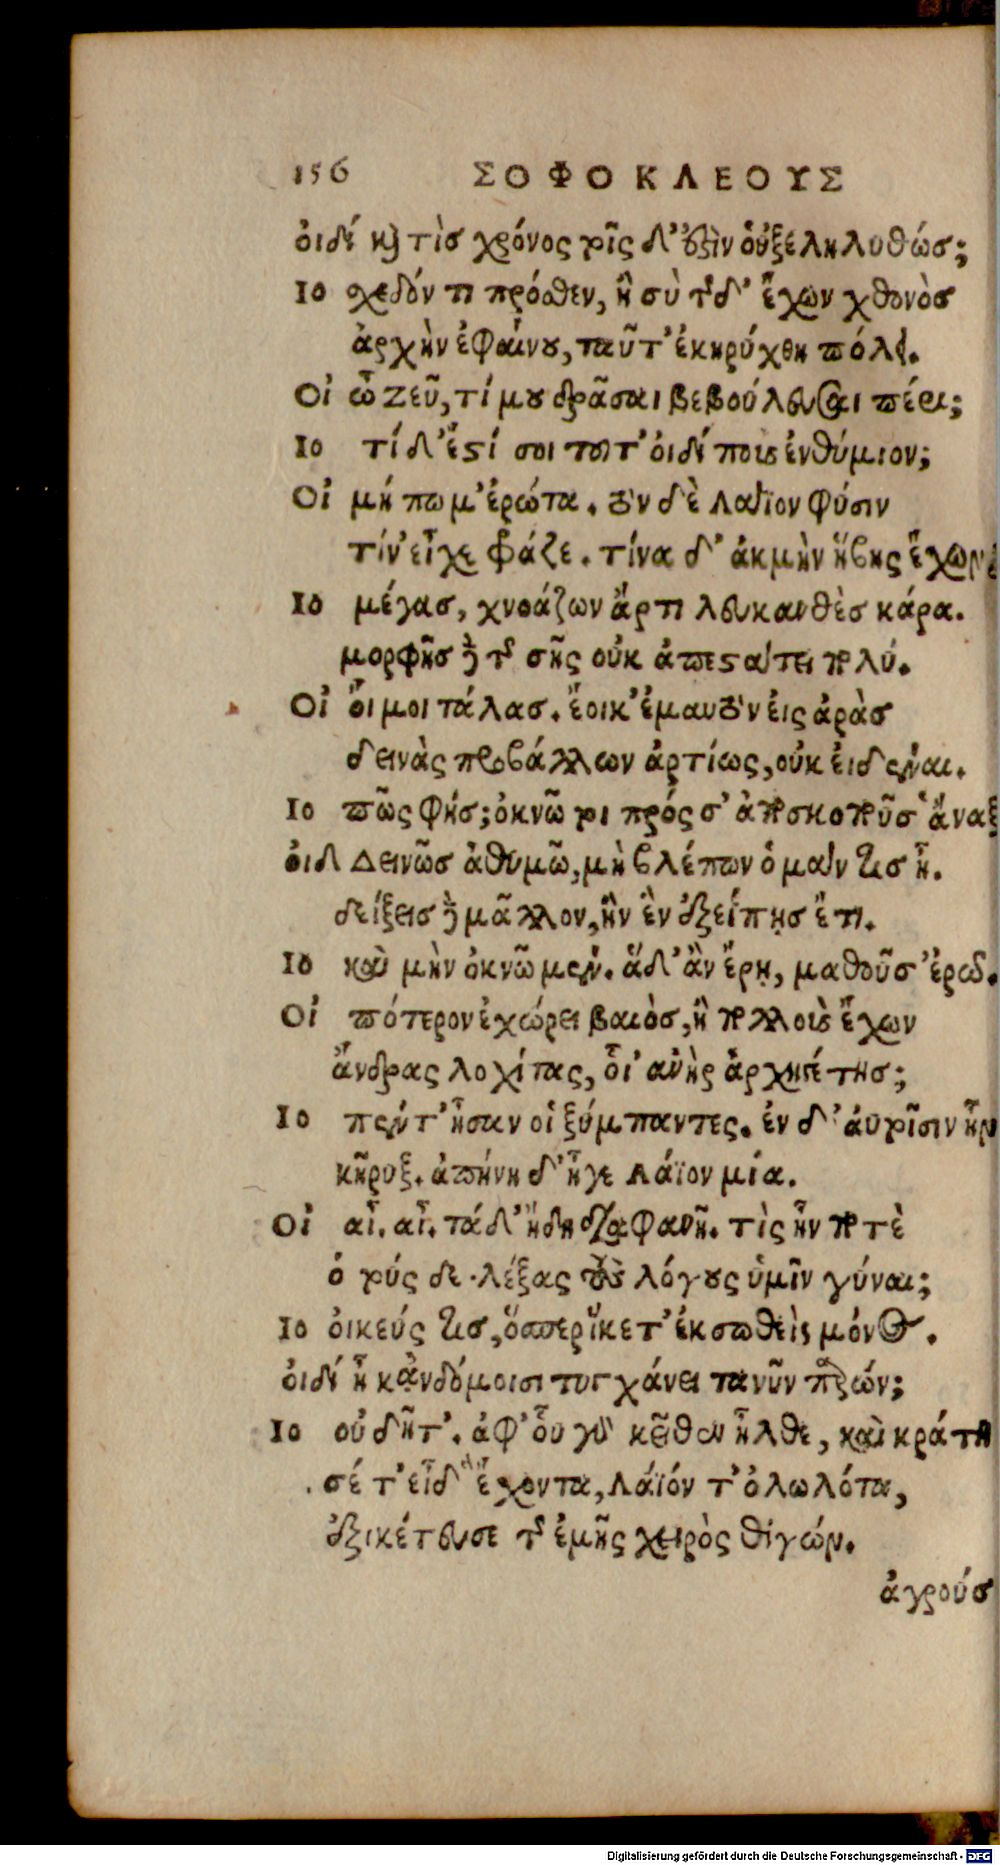 156 ΣΟΦΟΚΛΕΟΥΣ
οιδί καὶ τὶσ χρόνος τοῖς δ' ἐστὶν οὑξεληλυθώς;
Ιο σχεδόν τι πρόσθεν, ἢ σὺ τῆσδ' ἔχων χθονὸσ
ἀρχὴν ἐφαίνου, ταῦτ' ἐκηρύχθη πόλει.
Οἰ ὦ Ζεῦ, τί μου δρᾶσαι βεβούλευσαι πέρι;
Ιο τί δ' ἐστί σοι τοῦτ' οἰδίπους ἐνθύμιον;
Οἰ μή πω μ' ἐρώτα. τὸν δὲ Λαίϊον φύσιν
τίν' εἶχε φράζε. τίνα δ' ἀκμὴν ἥβης ἔχων
Ιο μέγασ, χνοάζων ἄρτι λευκανθὲσ κάρα.
μορφῆσ δὲ τῆς σῆς οὐκ ἀπεστάτει πολύ.
Οἰ οἴμοι τάλασ. ἔοικ' ἐμαυτὸν εἰς ἀρὰσ
δεινὰς προβάλλων ἀρτίως, οὐκ εἰδέναι.
Ιο πῶς φής; ὀκνῶ τοι πρός σ' ἀποσκοποῦσ' ἄναξ
οιδ Δεινῶσ ἀθυμῶ, μὴ βλέπων ὁ μάντισ ᾖ.
δείξεισ δὲ μᾶλλον, ἢν ἓν ἐξείπῃσ ἔτι.
Ιο καὶ μὴν ὀκνῶ μέν. ἅδ' ἂν ἔρῃ, μαθοῦσ' ἐρῶ.
Οἰ πότερον ἐχώρει βαιὸσ, ἢ πολλοὺς ἔχων
ἄνδρας λοχίτας, οἷ' ἀνὴρ ἀρχηγέτησ;
Ιο πέντ' ἦσαν οἱ ξύμπαντες. ἐν δ' αὐτοῖσιν ἦν
κῆρυξ. ἀπήνη δ' ἦγε Λάϊον μία.
Οἰ αἶ. αἶ. τάδ' ἤδη διαφανῆ. τὶς ἦν ποτὲ
ὁ τούς δε λέξας τοὺς λόγους ὑμῖν γύναι;
Ιο οἰκεύς τισ, ὅσπερ ἵκετ' ἐκσωθεὶς μόνος.
οιδί ἦ κἀν δόμοισι τυγχάνει τανῦν παρών;
Ιο οὐ δῆτ'. ἀφ' οὗ γὰρ κεῖθεν ἦλθε, καὶ κράτη
σέ τ' εἶδ' ἔχοντα, Λάϊόν τ' ὀλωλότα,
ἐξικέτευσε τῆς ἐμῆς χειρὸς θιγών.
ἀγρούσ
Digitalisierung gefördert durch die Deutsche Forschungsgemeinschaft - DFG